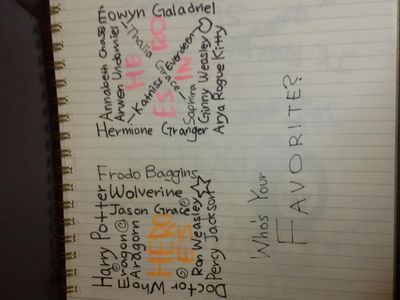 Eowyn Galadriel
Annabeth Chase
Arwen Undomiel
Thalia Grace
HERO
ES IN
Katniss Everdeen
Saphira
Ginny Weasley
Arya Rogue Kitty
Hermione Granger
Frodo Baggins
Wolverine
Jason Grace
Harry Potter
Eragon
Aragorn
HERO
ES
Ron Weasley
Percy Jackson
Doctor Who
Who's Your
FAVORITE?